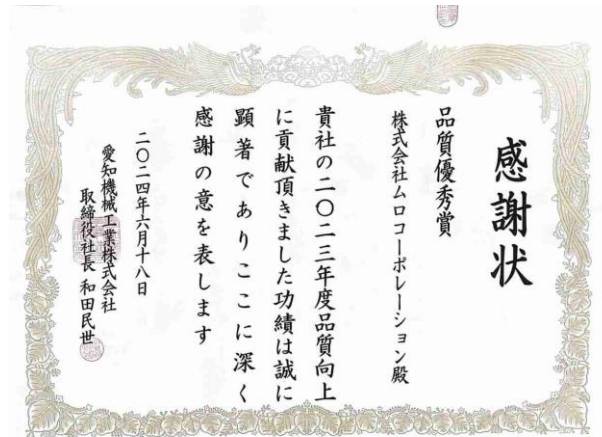 感謝状
品質優秀賞
株式会社ムロコーポレーション殿
貴社の二〇二三年度品質向上
に貢献頂きました功績は誠に
顕著でありここに深く
感謝の意を表します
二〇二四年六月十八日
愛知機械工業株式会社
取締役社長 和田民世